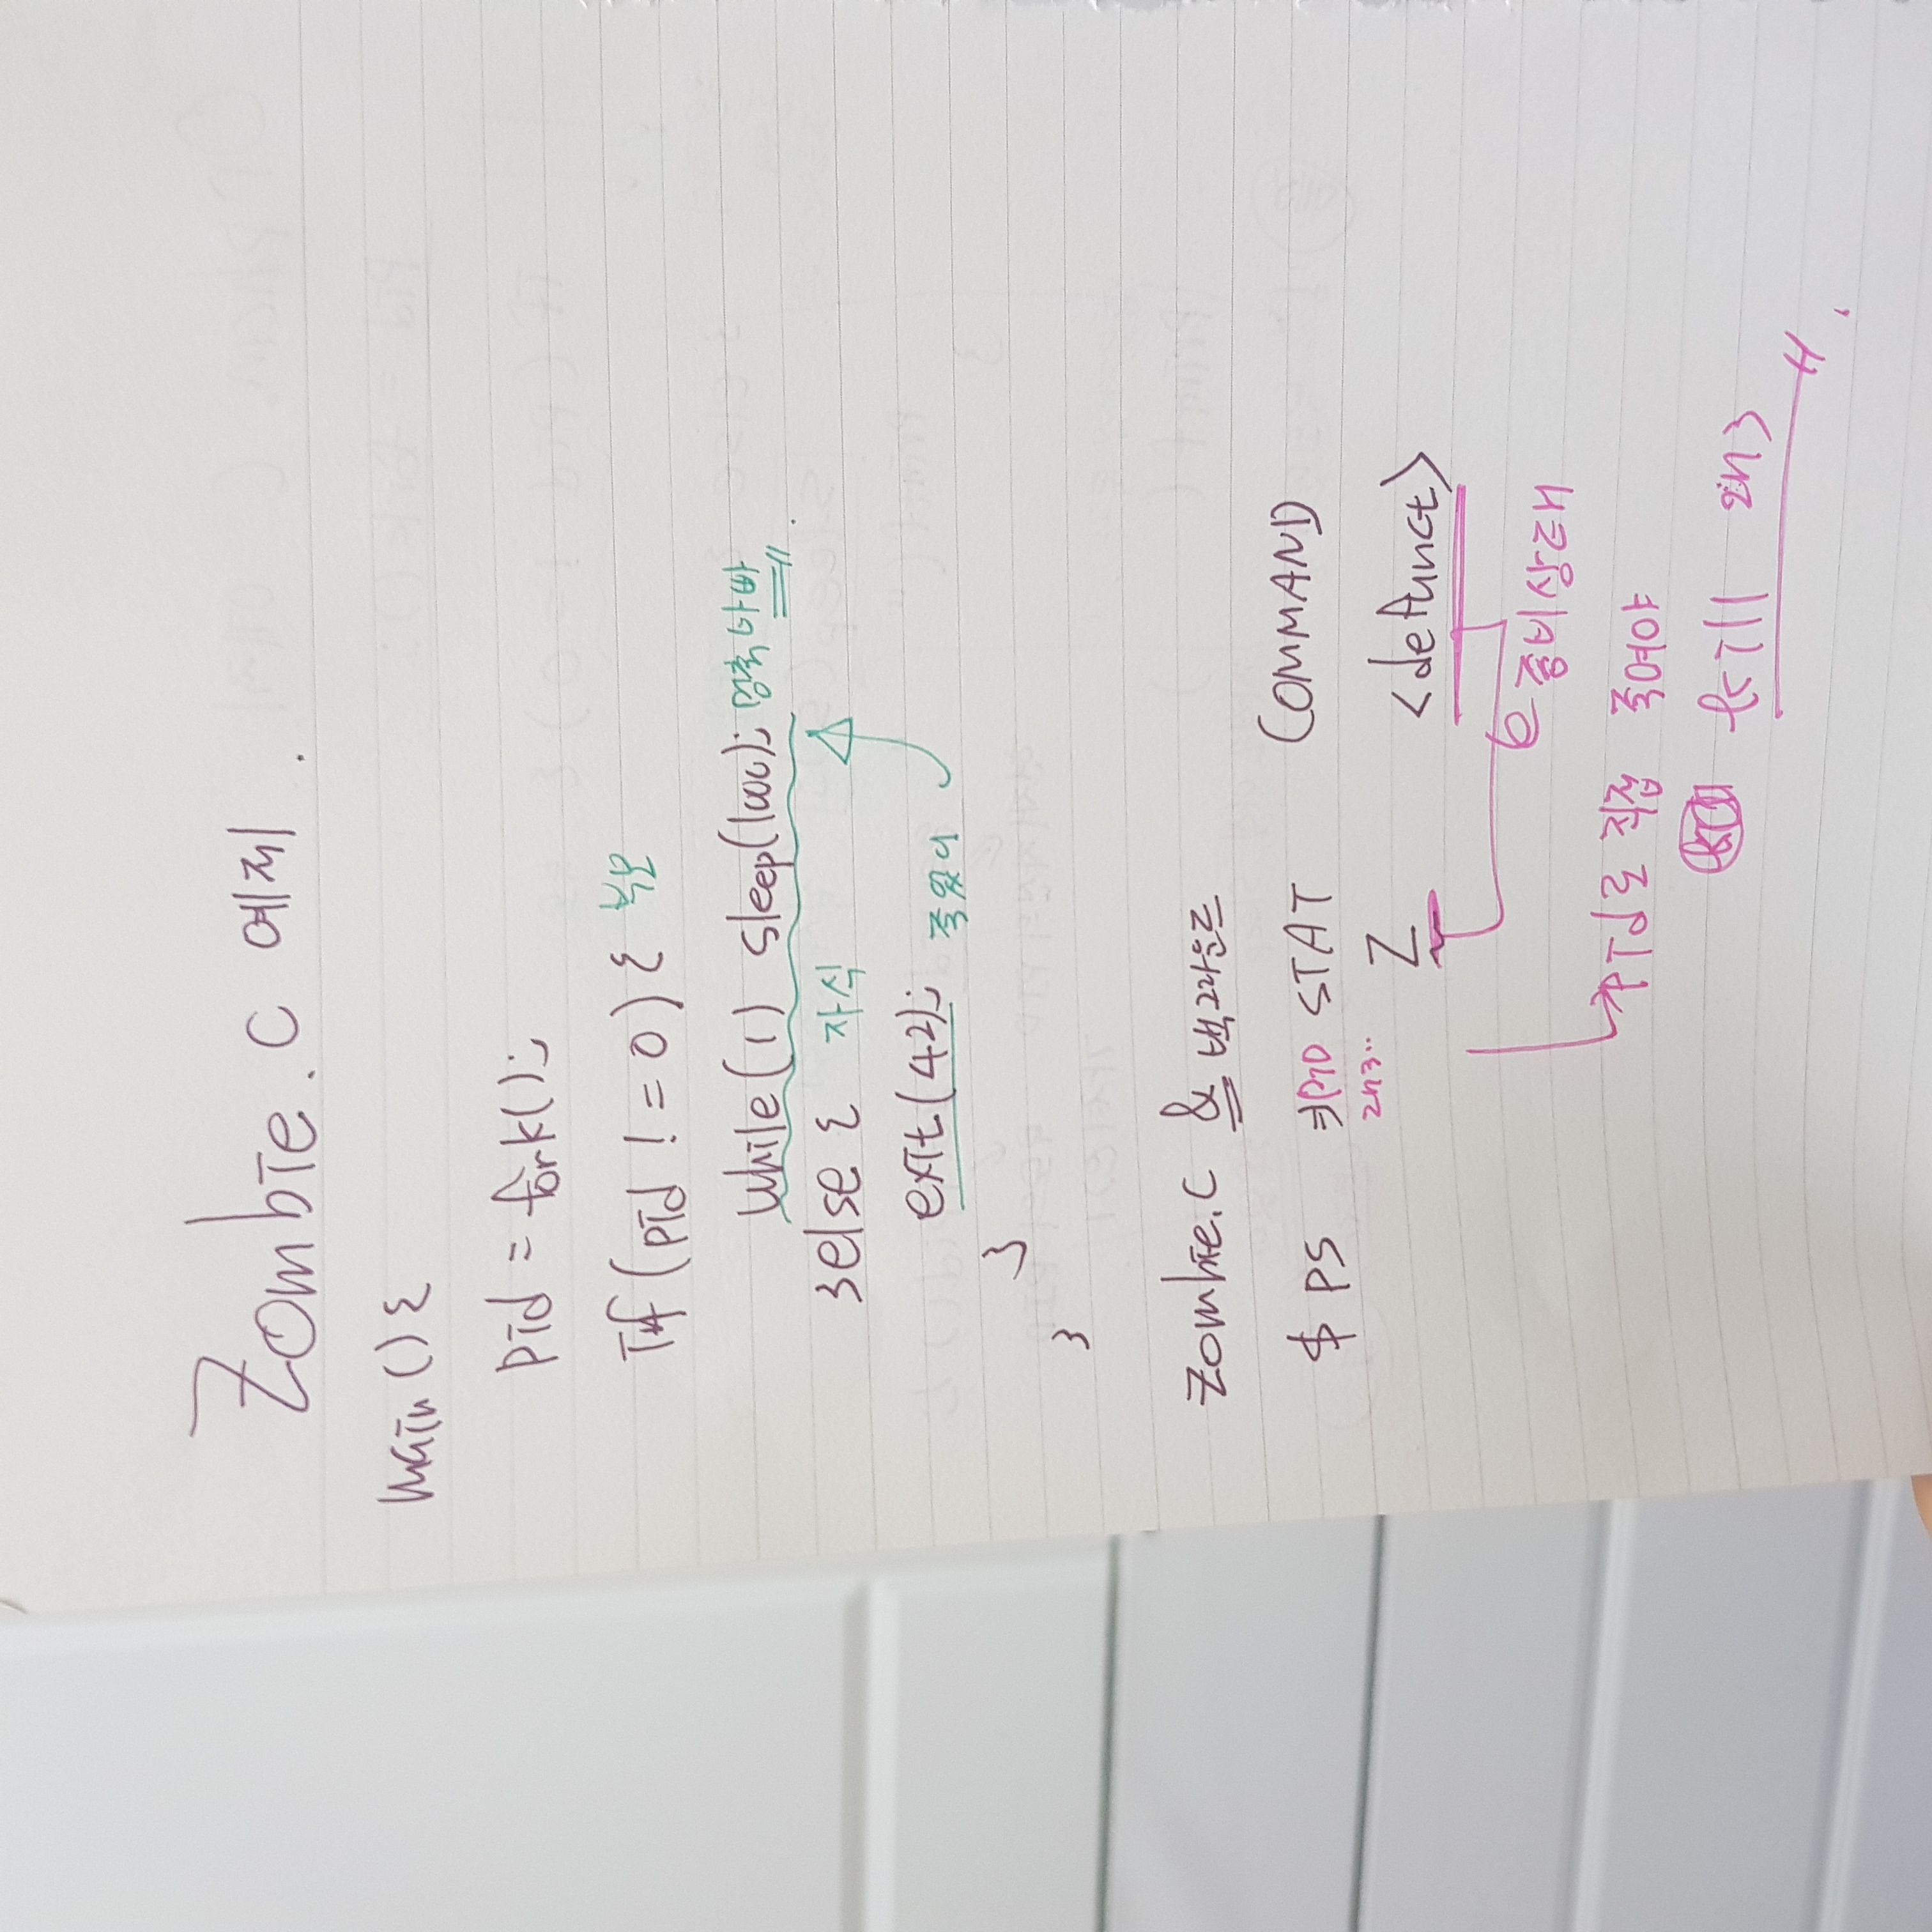 Zombie.c 예제.
main(){
pid = fork();
if(pid != 0){ 부모
while(1) sleep(100); 멍충아빠
}else{ 자식
exit(42); 죽었어
}
}
zombie.c & 백그라운드
$ PS ⇒ PID STAT COMMAND
273.. Z <defunct>
좀비상태
→ PId로 직접 죽여야
kill 273